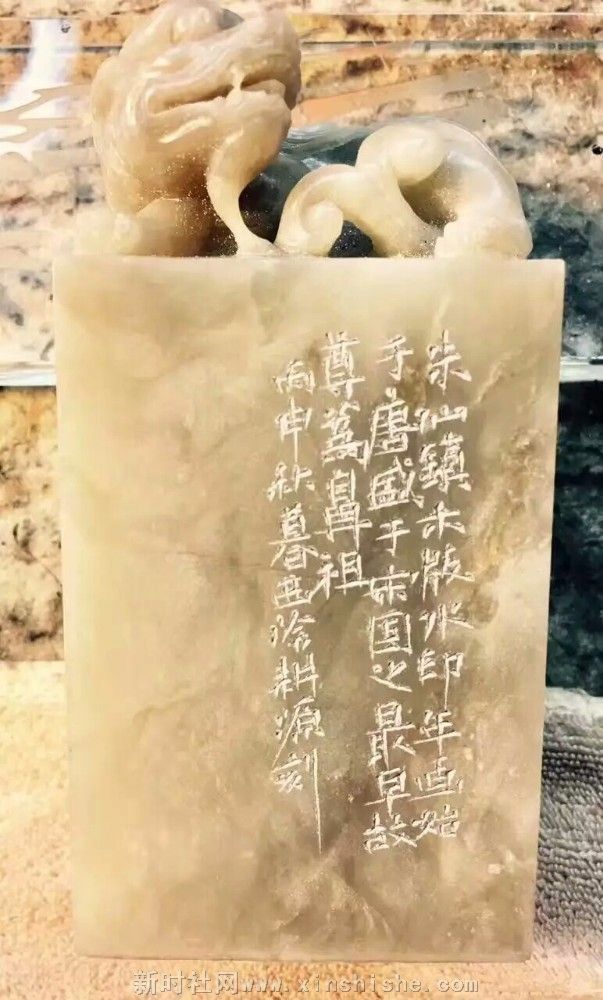 朱仙鎮木版水印年画始
于唐盛于宋国之最早故
尊為鼻祖
丙申秋暮西泠耕源刻
新时社网www.xinshishe.com